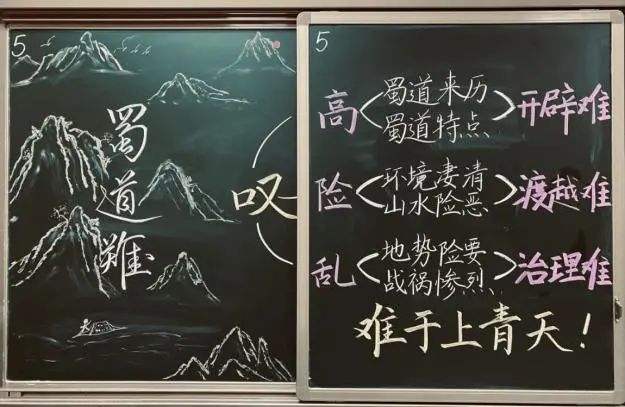 5
蜀道难
叹
5
高 蜀道来历 开辟难
蜀道特点
险 环境凄清 渡越难
山水险恶
乱 地势险要 治理难
战祸惨烈
难于上青天！